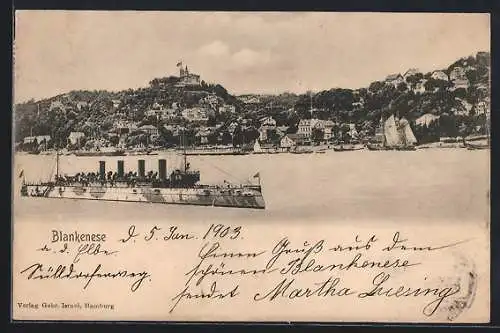 Blankenese d. 5. Jan. 1903.
a. d. Elbe
Sülldorferweg.
Einen Gruß aus dem
schönen Blankenese
sendet Martha
Verlag Gebr. Israel, Hamburg